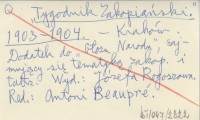 "Tygodnik Zakopiański."
1903-1904. - Kraków.
Dodatek do "Głosu Narodu", zaj-
mujący się tematyką zakop. i
tatrz. Wyd: Józefa Rogoszowa.
Red: Antoni Beaupré.